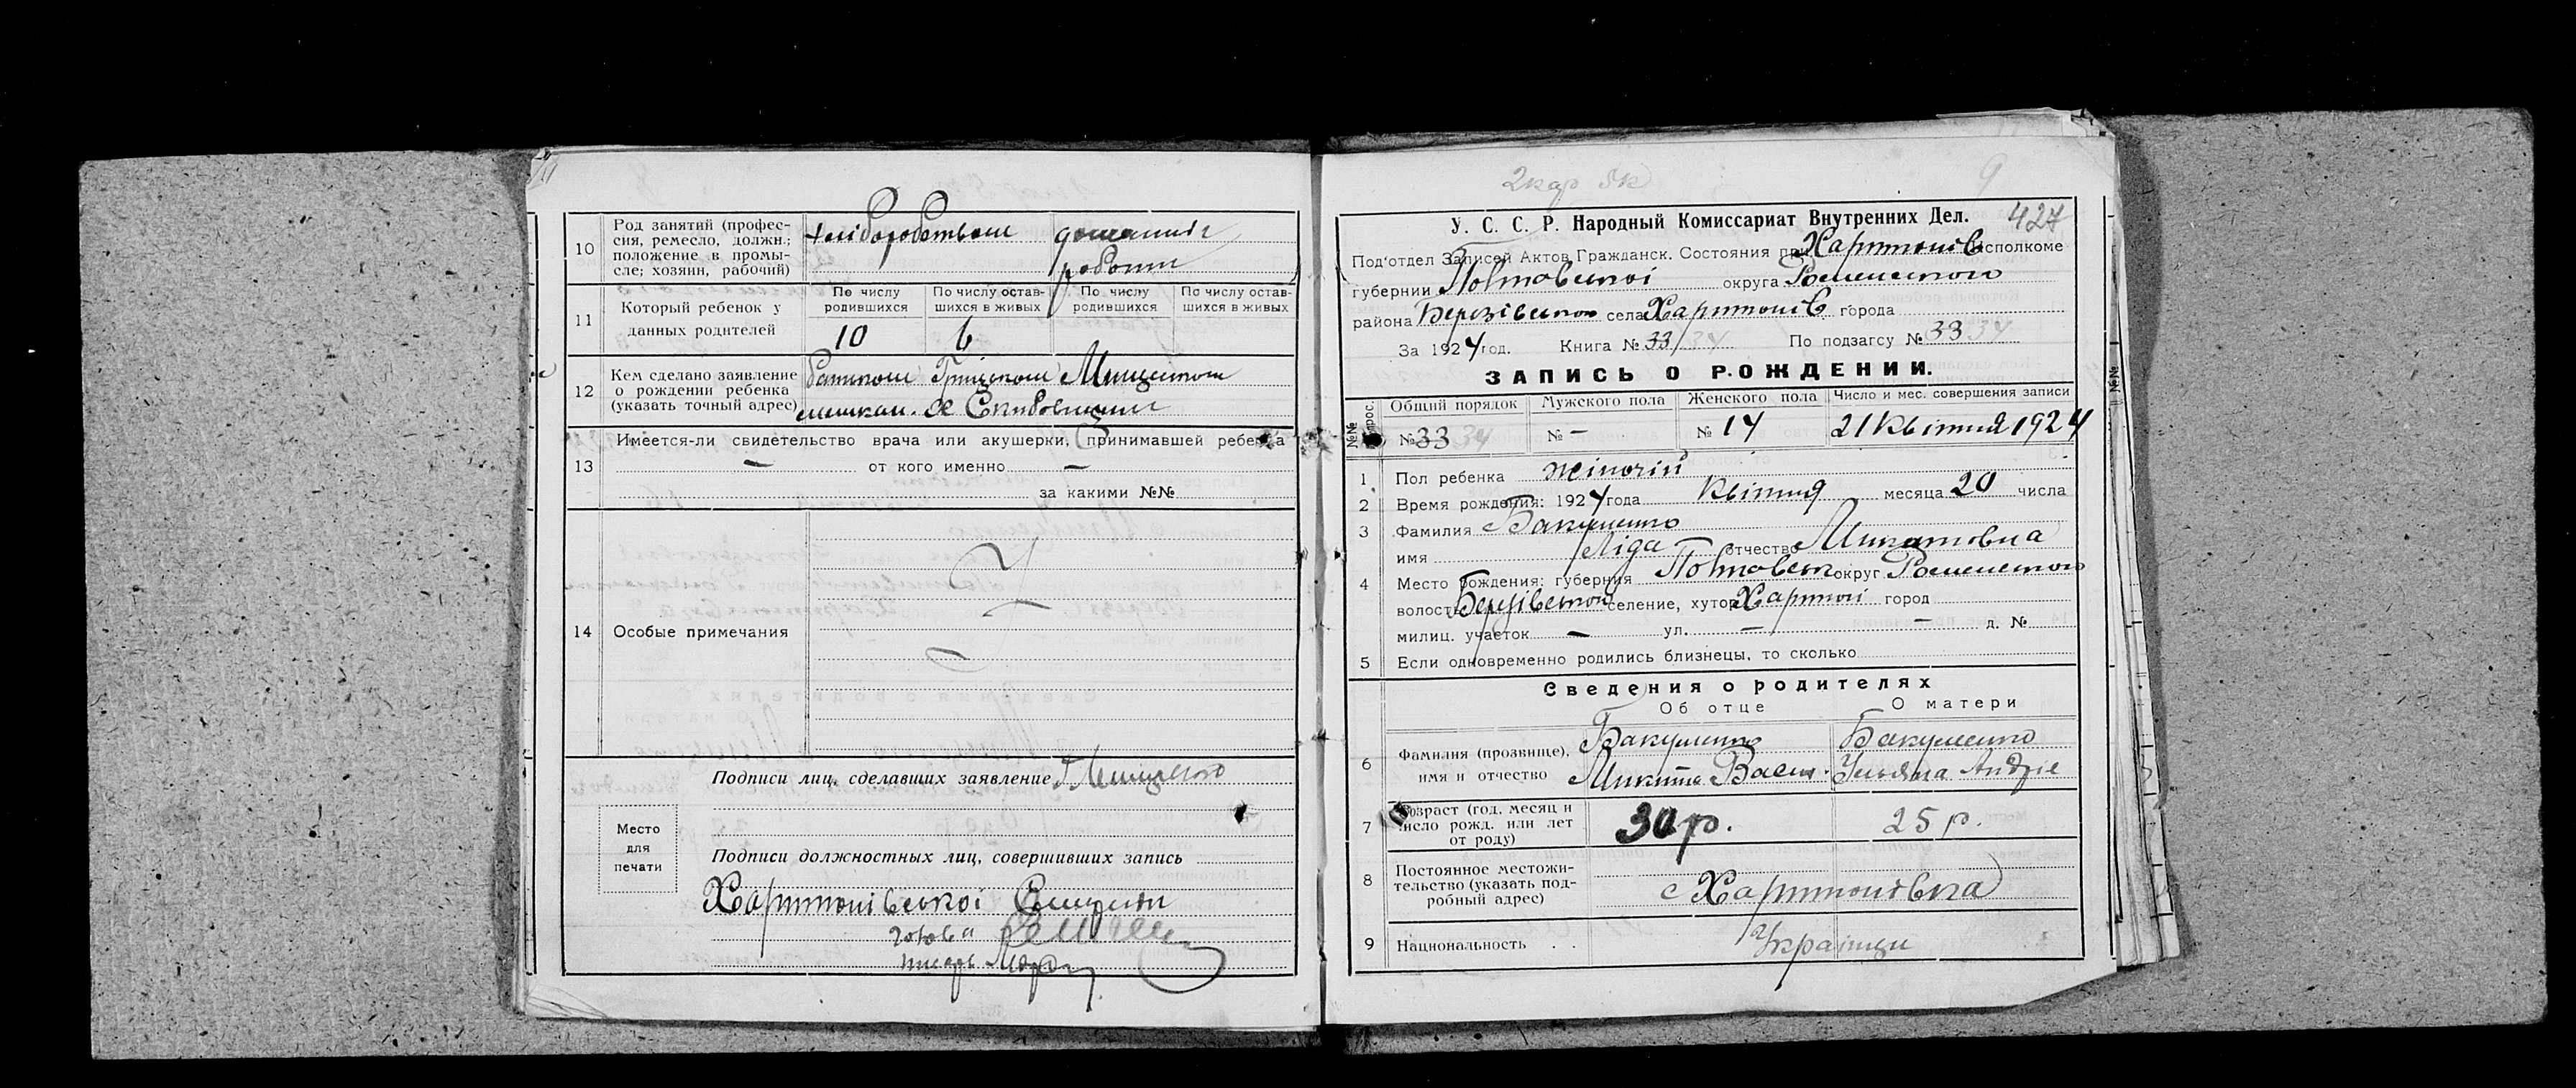 10
Род занятий (профес-
сия, ремесло, должн.;
положение в промы-
сле; хозяин, рабочий)
хліборобством
домашні
роботи
11
Который ребенок у
данных родителей
По числу
родившихся
По числу остав-
шихся в живых
По числу
родившихся
По числу остав-
шихся в живых
10
6
12
Кем сделано заявление
о рождении ребенка
(указать точный адрес)
батьком Грицьком Мищенком
мешкан.
13
Имеется-ли свидетельство врача или акушерки, принимавшей ребенка
— от кого именно —
за какими №№
14
Особые примечания
Подписи лиц, сделавших заявление Г Мищенко
Место
для
печати
Подписи должностных лиц, совершивших запись
Харитонівської
голова
писарь
9
427
У. С. С. Р. Народный Комиссариат Внутренних Дел.
Под'отдел Записей Актов Гражданск. Состояния при Харитонів исполкоме
губернии Полтавської округа Роменського
района Березівського села Харитонів города
За 1924 год. Книга № 33 34 По подзагсу № 33 34
ЗАПИСЬ О РОЖДЕНИИ.
№№
вопрос.
Общий порядок
Мужского пола
Женского пола
Число и мес. совершения записи
№ 33 34
№ —
№ 14
21 Квітня 1924
1 Пол ребенка жіночій
2 Время рождения: 1924 года Квітня месяца 20 числа
3 Фамилия Бакуменко
имя Ліда отчество Микитовна
4 Место рождения: губерния Полтавськ округ Роменського
волость Березівської селение, хутор Харитон город
милиц. участок — ул. — — д. №
5 Если одновременно родились близнецы, то сколько
Сведения о родителях
Об отце
О матери
6
Фамилия (прозвище),
имя и отчество
Бакуменко
Микита Васил.
Бакуменко
Ульяна Андріє
7
Возраст (год, месяц и
число рожд. или лет
от роду)
30 р.
25 р.
8
Постоянное местожи-
тельство (указать под-
робный адрес)
с Харитонівка
9
Национальность . .
Українци
№№